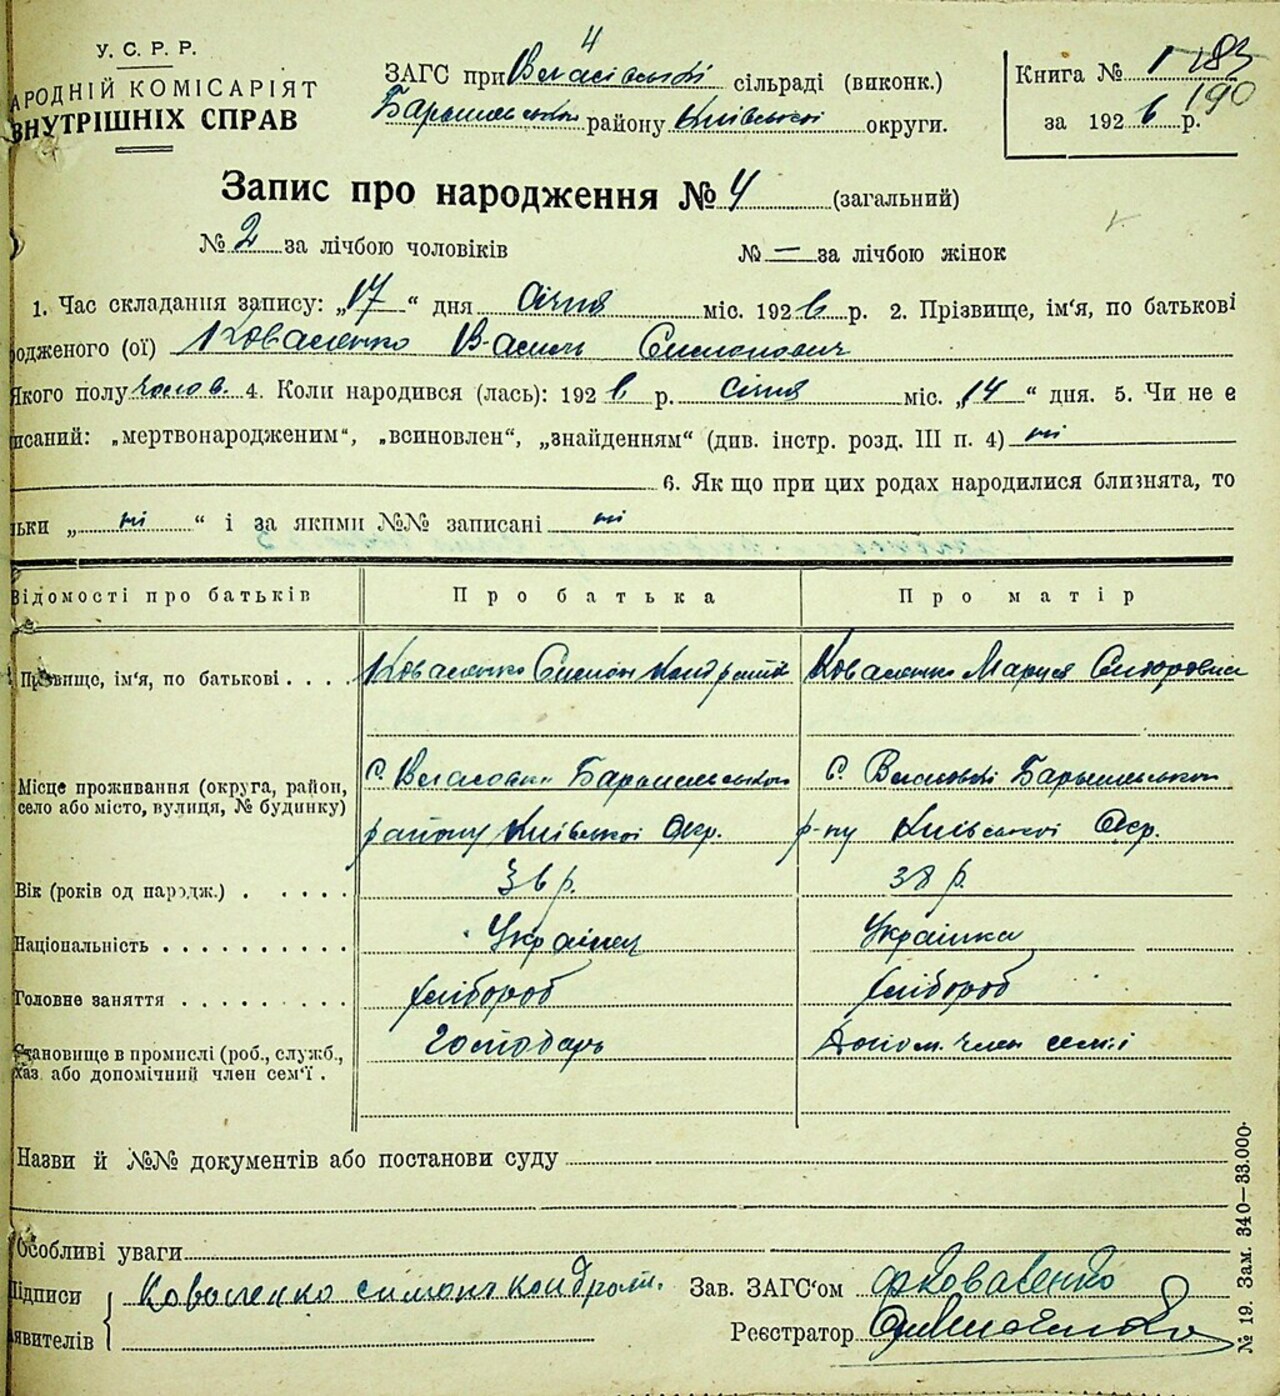 4
У. С. Р. Р.
АРОДНІЙ КОМІСАРІЯТ
ВНУТРІШНІХ СПРАВ
ЗАГС при Власівській сільраді (виконк.)
Баришельськом району Київської округи.
Книга № 1 183
190
за 1926 р.
Запис про народження № 4 (загальний)
№ 2 за лічбою чоловіків № — за лічбою жінок
1. Час складання запису: „17“ дня Січня міс. 1926 р. 2. Прізвище, ім‘я, по батькові
одженого (ої) Коваленко Василь Симонович
Якого полу чолов. 4. Коли народився (лась): 1926 р. січня міс. „14“ дня. 5. Чи не є
писаний: „мертвонародженим“, „всиновлен“, „знайденням“ (див. інстр. розд. III п. 4) ні
6. Як що при цих родах народилися близнята, то
льки „ ні “ і за якими №№ записані ні
Відомості про батьків Про батька Про матір
Прізвище, ім‘я, по батькові . . . . Коваленко Симон Кондратів Коваленко Маруся Сидоровна
Місце проживання (округа, район, село або місто, вулиця, № будинку)
С. Власовки Баришельськом С. Власовки Баришельськом
району Київської Окр. р-ну Київської Окр.
Вік (років од народж.) . . . . . 36 р. 38 р.
Національність . . . . . . . . . . Українец Українка
Головне заняття . . . . . . . . . хлібороб хлібороб
Становище в промислі (роб., служб., Господарь Допом. член семї
хаз. або допомічний член сем‘ї .
Назви й №№ документів або постанови суду
Особливі уваги
Підписи Коваленко симон кондрат. Зав. ЗАГС‘ом Коваленко
явителів Реєстратор
№ 19. Зам. 340—33.000.